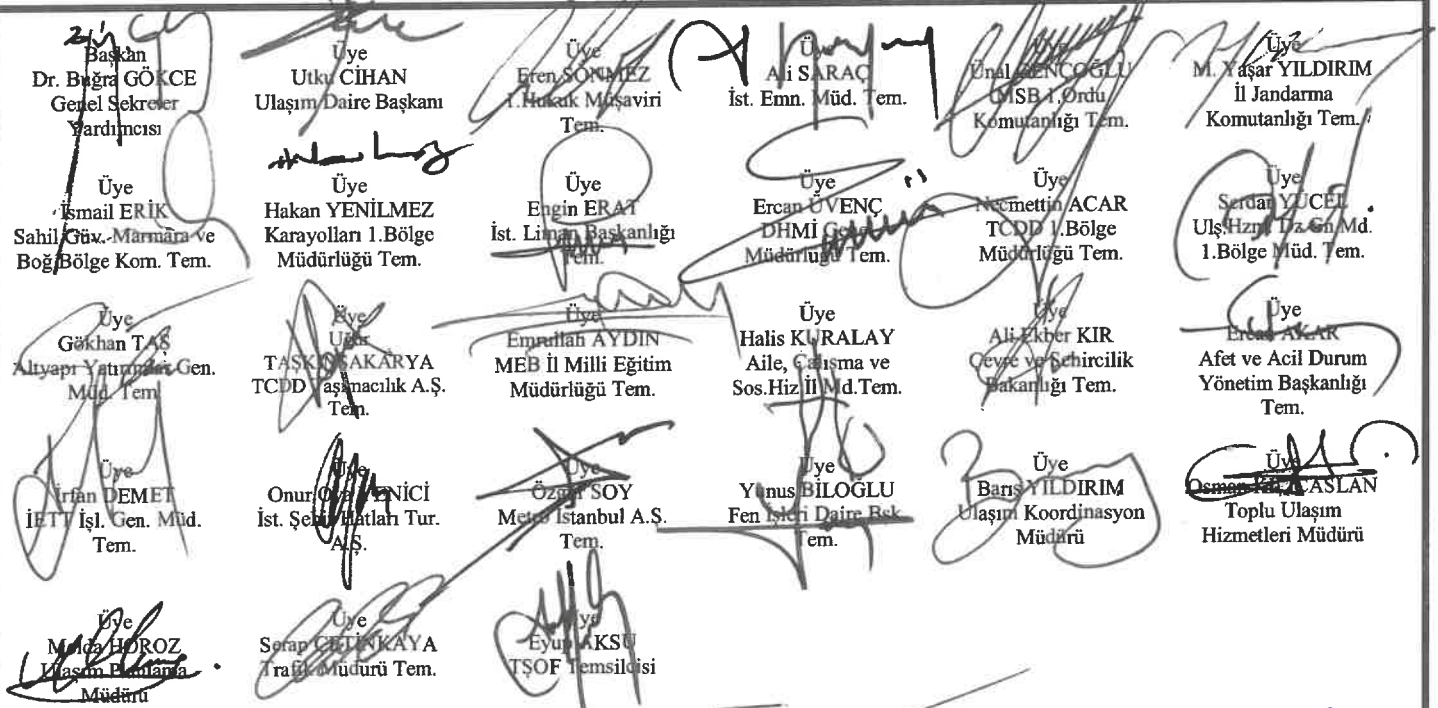 Başkan
Dr. Buğra GÖKCE
Genel Sekreter
Yardımcısı
Üye
Utku CİHAN
Ulaşım Daire Başkanı
Üye
Eren SÖNMEZ
1.Hukuk Müşaviri
Tem.
Üye
Ali SARAÇ
İst. Emn. Müd. Tem.
Üye
Ünal GENÇOĞLU
MSB 1.Ordu
Komutanlığı Tem.
Üye
M. Yaşar YILDIRIM
İl Jandarma
Komutanlığı Tem.
Üye
İsmail ERİK
Sahil Güv. Marmara ve
Boğ.Bölge Kom. Tem.
Üye
Hakan YENİLMEZ
Karayolları 1.Bölge
Müdürlüğü Tem.
Üye
Engin ERAT
İst. Liman Başkanlığı
Tem.
Üye
Ercan ÜVENÇ
DHMİ Genel
Müdürlüğü Tem.
Üye
Necmettin ACAR
TCDD 1.Bölge
Müdürlüğü Tem.
Üye
Serdar YÜCEL
Ulş.Hzm. Dz.Gn Md.
1.Bölge Müd. Tem.
Üye
Gökhan TAŞ
Altyapı Yatırımları Gen.
Müd. Tem.
Üye
Uğur
TAŞKINSAKARYA
TCDD Taşımacılık A.Ş.
Tem.
Üye
Emrullah AYDIN
MEB İl Milli Eğitim
Müdürlüğü Tem.
Üye
Halis KURALAY
Aile, Çalışma ve
Sos.Hiz İl Md.Tem.
Üye
Ali Ekber KIR
Çevre ve Şehircilik
Bakanlığı Tem.
Üye
Ercan AKAR
Afet ve Acil Durum
Yönetim Başkanlığı
Tem.
Üye
İrfan DEMET
İETT İşl. Gen. Müd.
Tem.
Üye
Onur YENİCİ
İst. Şehir Hatları Tur.
A.Ş.
Üye
Özgür SOY
Metro İstanbul A.Ş.
Tem.
Üye
Yunus BİLOĞLU
Fen İşleri Daire Bşk.
Tem.
Üye
Barış YILDIRIM
Ulaşım Koordinasyon
Müdürü
Üye
Osman
Toplu Ulaşım
Hizmetleri Müdürü
Üye
Melda HOROZ
Ulaşım Planlama
Müdürü
Üye
Serap ÇETİNKAYA
Trafik Müdürü Tem.
Üye
Eyup AKSU
TŞOF Temsilcisi